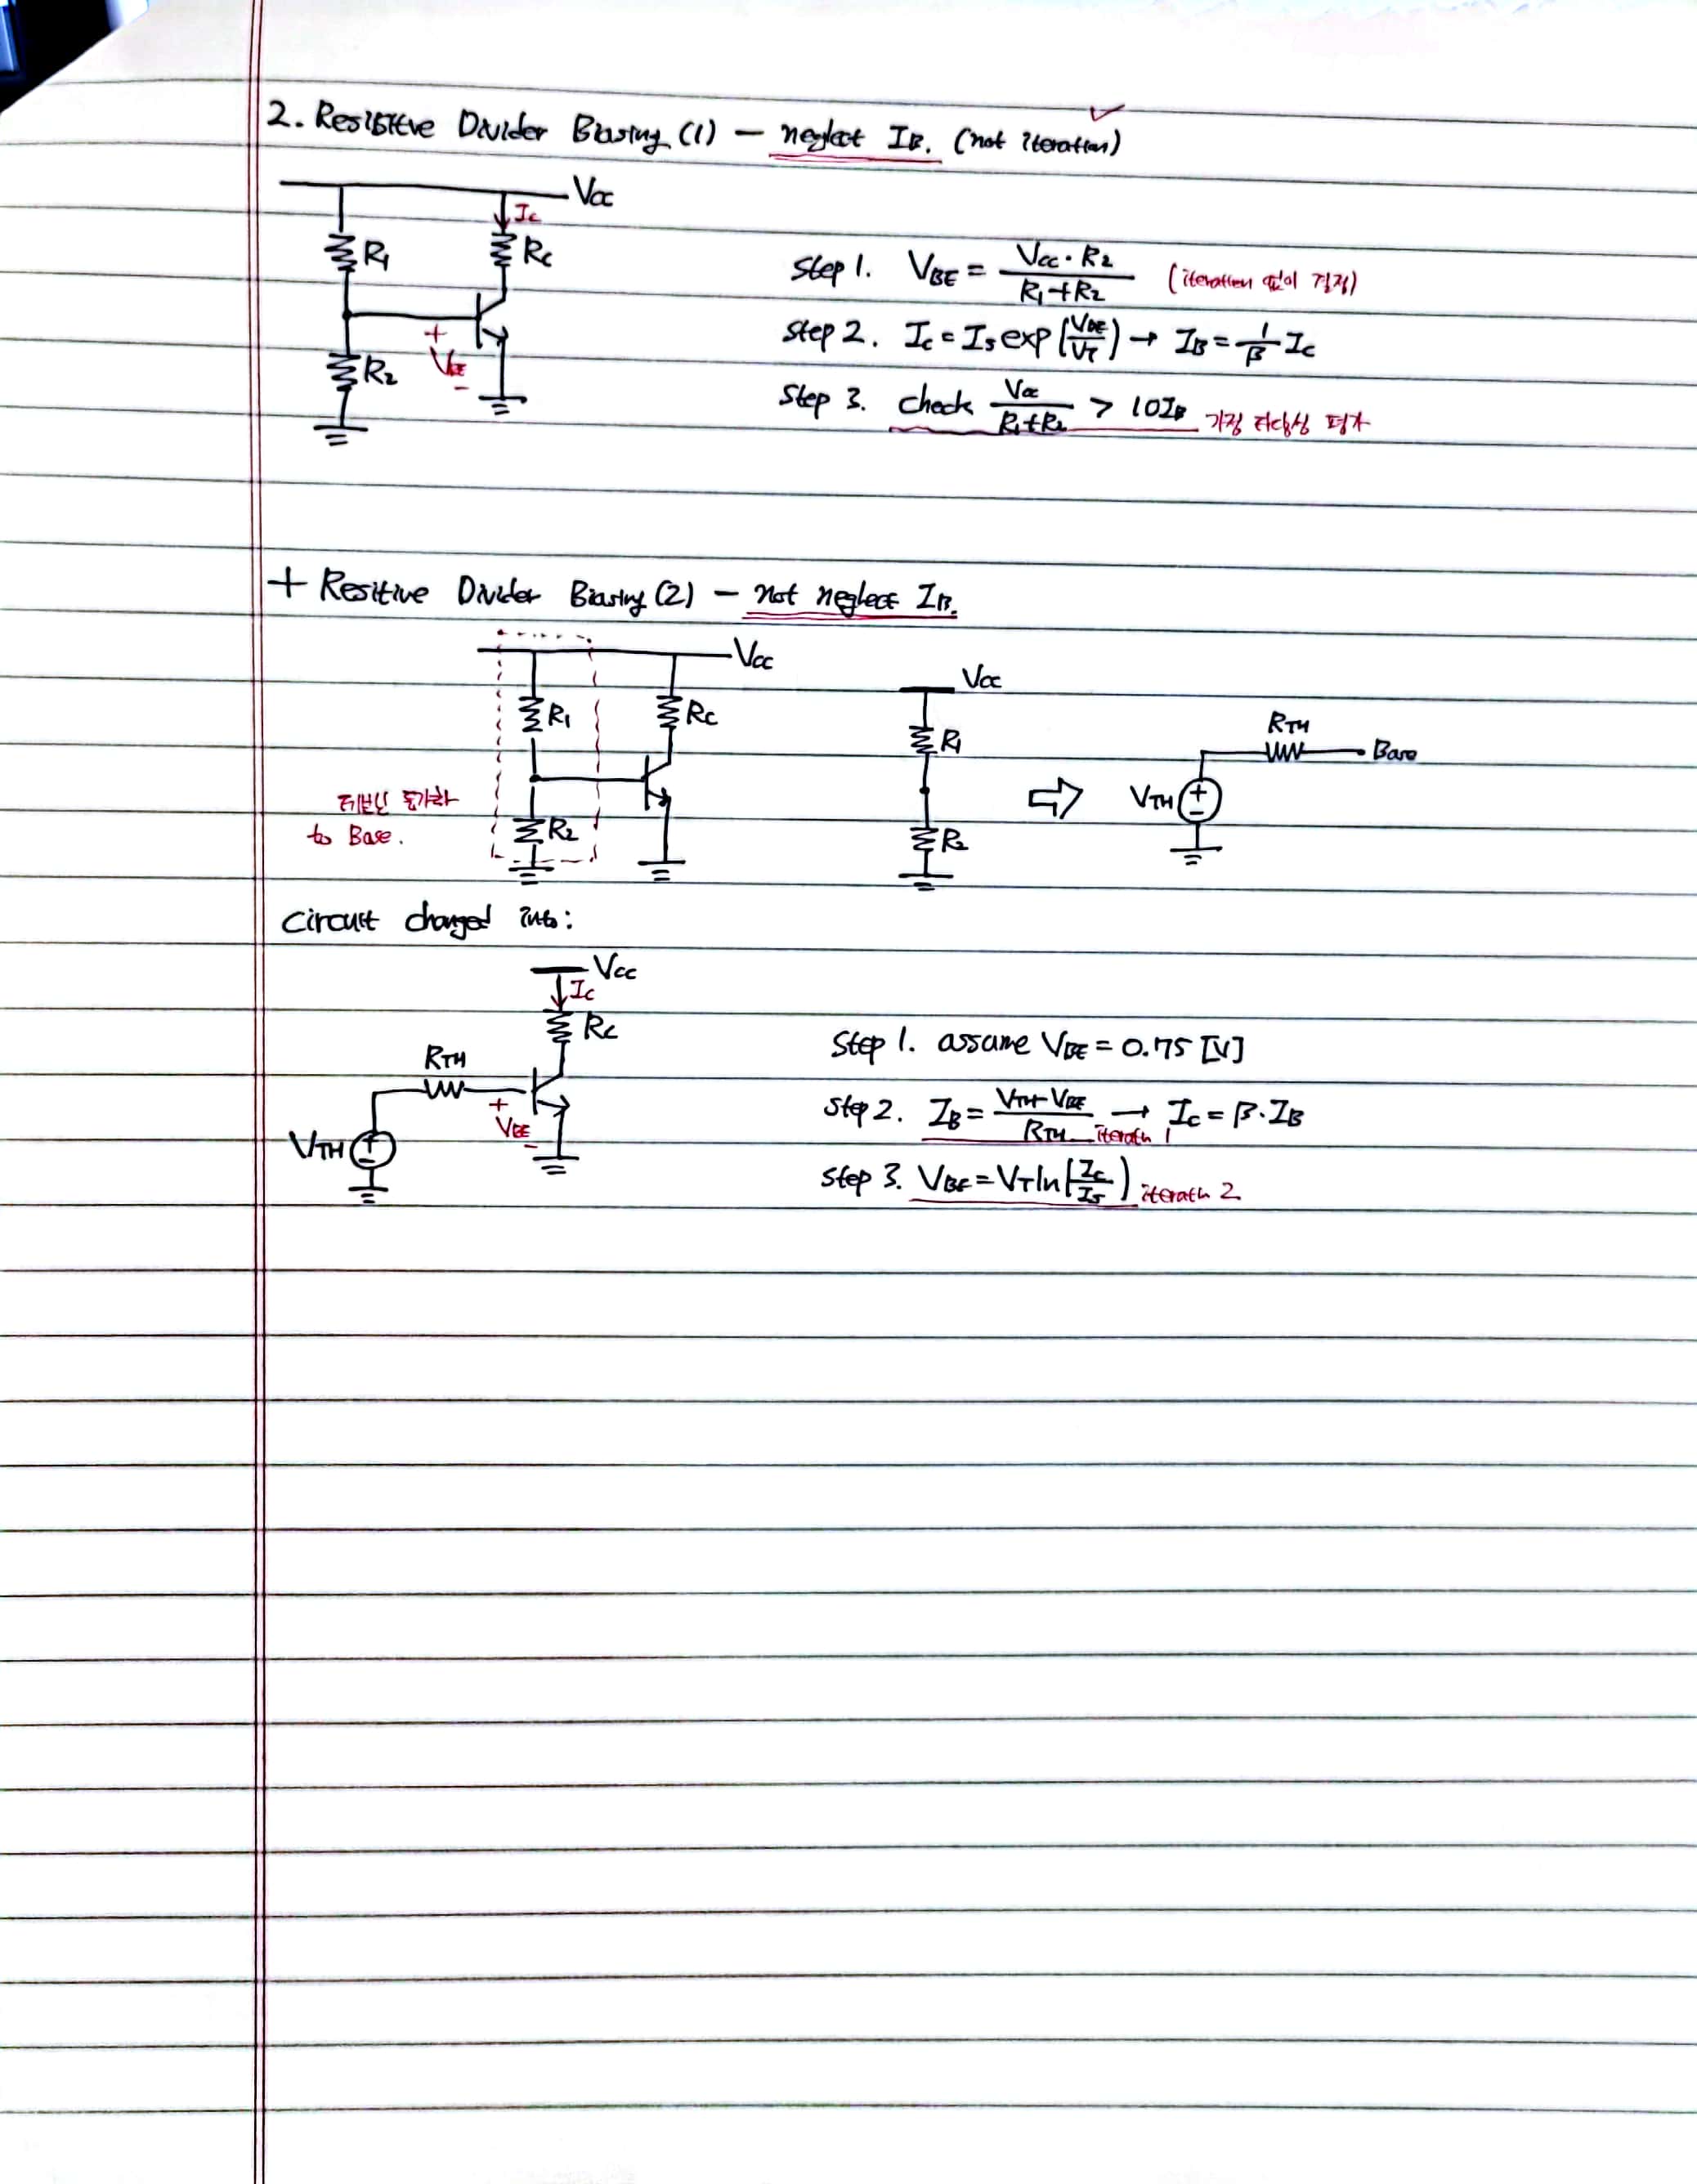 2. Resistive Divider Biasing (1) — neglect IB. (not iteration)
VCC
IC
R1
RC
+
VBE
−
R2
Step 1. VBE = VCC · R2 / R1 + R2 (iteration 없이 결정)
Step 2. IC = IS exp(VBE/VT) → IB = 1/β IC
Step 3. check VCC / R1+R2 > 10IB 가정 타당성 평가
+ Resitive Divider Biasing (2) — not neglect IB.
VCC
R1
RC
R2
테브닌 등가화
to Base.
VCC
R1
R2
⇨
RTH
Base
VTH
+
−
circuit changed into:
VCC
IC
RC
RTH
+
VBE
−
VTH
+
−
Step 1. assume VBE = 0.75 [V]
Step 2. IB = VTH - VBE / RTH → IC = β · IB
iteratn 1
Step 3. VBE = VT ln(IC/IS) iteratn 2